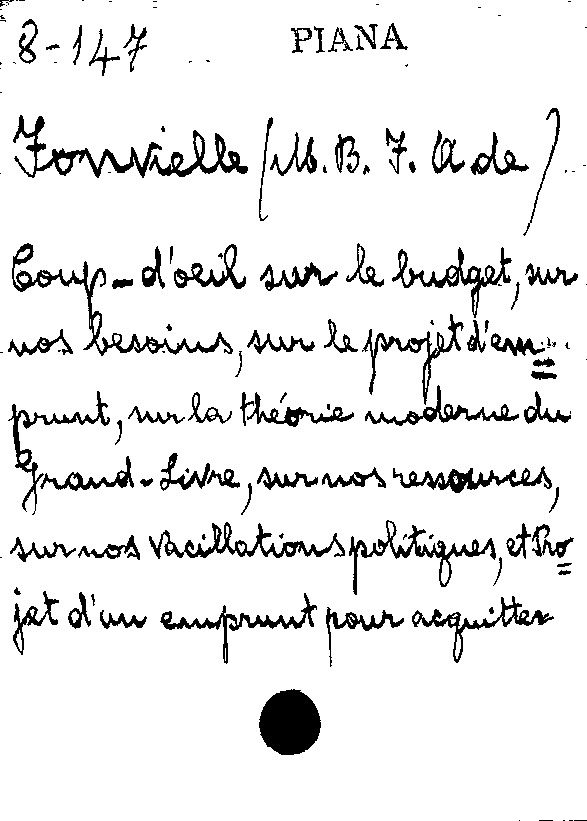 8-147 PIANA
Fonvielle (M. B. F. A de)
Coup-d'oeil sur le budget, sur
nos besoins, sur le projet d'em=
prunt, sur la théorie moderne du
Grand-Livre, sur nos ressources,
sur nos vacillations politiques, et Pro=
jet d'un emprunt pour acquitter